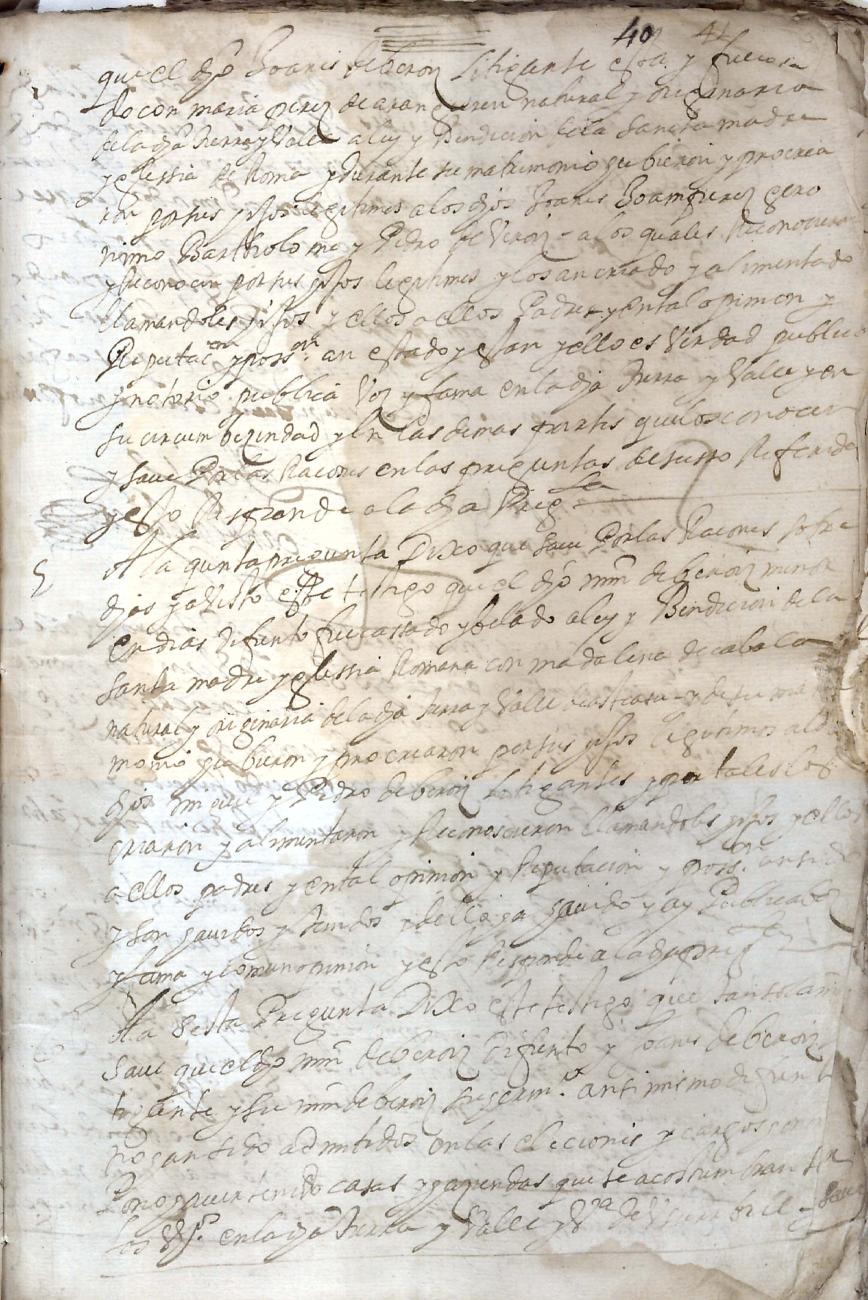 40 41
que el dho Joanis de beroiz litigante esta y fue cassa
do con maria perez de aranguren natural y originaria
de la dha tierra y Valle a ley y Bendicion de la Sancta madre
yglessia de Roma y durante su matrimonio hubieron y procrea
ron por sus hijos legitimos a los dhos Joanis Joamperez gero
nimo Bartholome y Pedro de Veroiz a los quales Reconocieron
y Reconocen por sus hijos legitimos y los an criado y alimentado
llamandoles hijos y ellos a ellos Padres y en tal opinion y
Reputacon y posson an estado y estan y ello es Verdad publico
y notorio publica Voz y fama en la dha tierra y Valle y en
su circumbezindad y en las demas partes que los conocen
y saue Por las Racones en las preguntas de susso Referidas
y esto Responde a la dha Pregta
5 A la quinta pregunta Dixo que saue Por las Racones sobre
dhas y a Visto este testigo que el dho mrn de beroiz menor
en dias difunto fue cassado y belado a ley y Bendicion de la
santa madre yglessia Romana con madalena de cabala
natural y originaria de la dha tierra y Valle de y de su matri
monio hubieron y procrearon por sus hijos legitimos a los
dhos y Pedro de beroiz litigantes y por tales los
criaron y alimentaron y Reconoscieron llamandoles hijos y ellos
a ellos padres y en tal opinion y Reputacion y posson an sido
y son hauidos y tenidos y dello a hauido y ay Publica Voz
y fama y comun opinion y esto Responde a la dha pregta
A la sesta Pregunta Dixo este testigo que tan solam
saue que el dho mrn de beroiz difunto y Joanis de beroiz li
tigante y su mrn de beroiz su ansi mismo difunto
no an sido admitidos en las eleciones y cargos
Por no hauer tenido casas y haziendas que se acostumbran
los en la dha tierra y Valle y Va de y saue